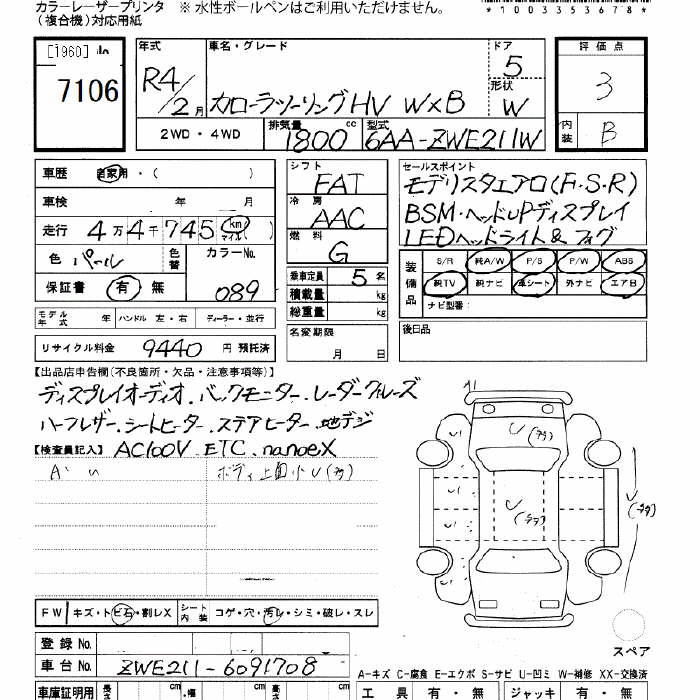 カラーレーザープリンタ ※ 水性ボールペンはご利用いただけません。
(複合機)対応用紙
*1003353678*
[1960]
7106
年式 R4/2月
車名・グレード カローラツーリングHV W×B
ドア 5
形状 W
評価点 3
内装 B
2WD・4WD 排気量 1800 cc 型式 6AA-ZWE211W
車歴 自家用・( )
車検 年 月
走行 4万4千745 km マイル( )
色 パール 色替 カラーNo. 089
保証書 有・無
モデル年式 年 ハンドル 左・右 ディーラー・並行
リサイクル料金 9440 円 預託済
シフト FAT
冷房 AAC
燃料 G
乗車定員 5 名
積載量 kg
総重量 kg
名変期限
月 日
セールスポイント
モデリスタエアロ(F・S・R)
BSM・ヘッドUPディスプレイ
LEDヘッドライト&フォグ
装備品
S/R 純A/W P/S P/W ABS
純TV 純ナビ 革シート 外ナビ エアB
ナビ型番:
後日品
【出品店申告欄(不良箇所・欠品・注意事項等)】
ディスプレイオーディオ.バックモニター.レーダークルーズ
ハーフレザー.シートヒーター.ステアヒーター.地デジ
【検査員記入】 AC100V.ETC.nanoeX
ボディ上面小U(多)
U(多)
U(多)
U(多)
FW キズ・トビ石・割レX シート内装 コゲ・穴・汚レ・シミ・破レ・スレ
スペア
登録 No.
車台 No. ZWE211-6091708
A-キズ C-腐食 E-エクボ S-サビ U-凹ミ W-補修 XX-交換済
車庫証明用 長さ cm ・幅 cm ・高さ cm
工具 有・無 ジャッキ 有・無